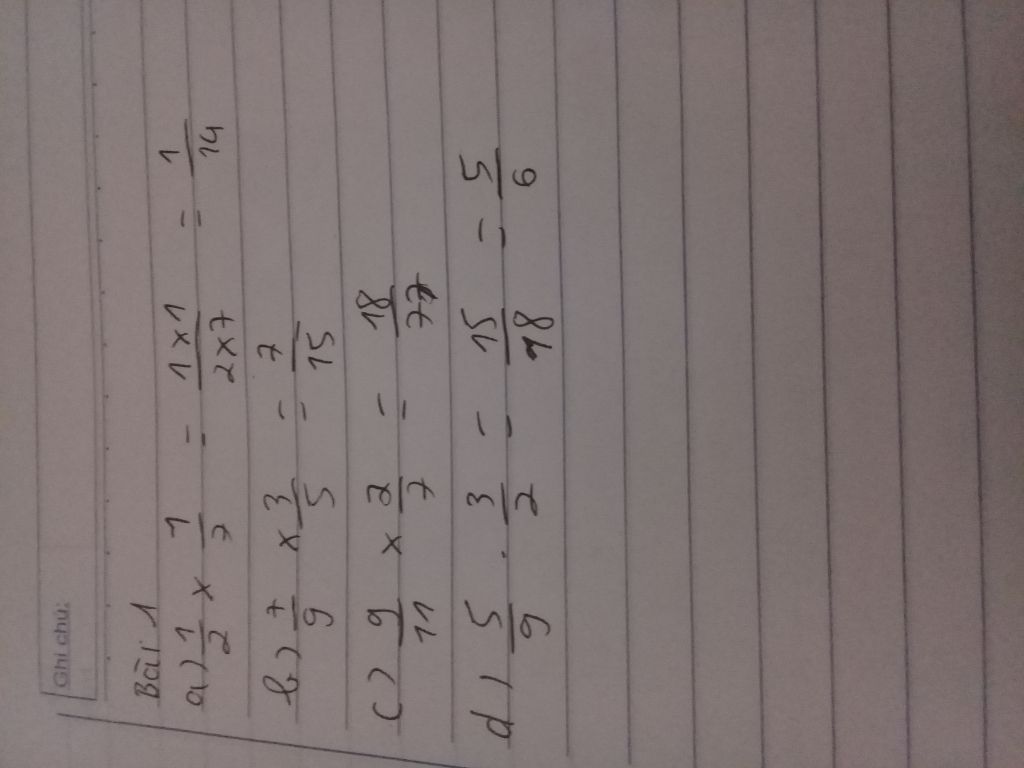 Ghi chú:
Bài 1
a) 1/2 x 1/7 = 1x1/2x7 = 1/14
b) 7/9 x 3/5 = 7/15
c) 9/11 x 2/7 = 18/77
d) 5/9 . 3/2 = 15/18 = 5/6